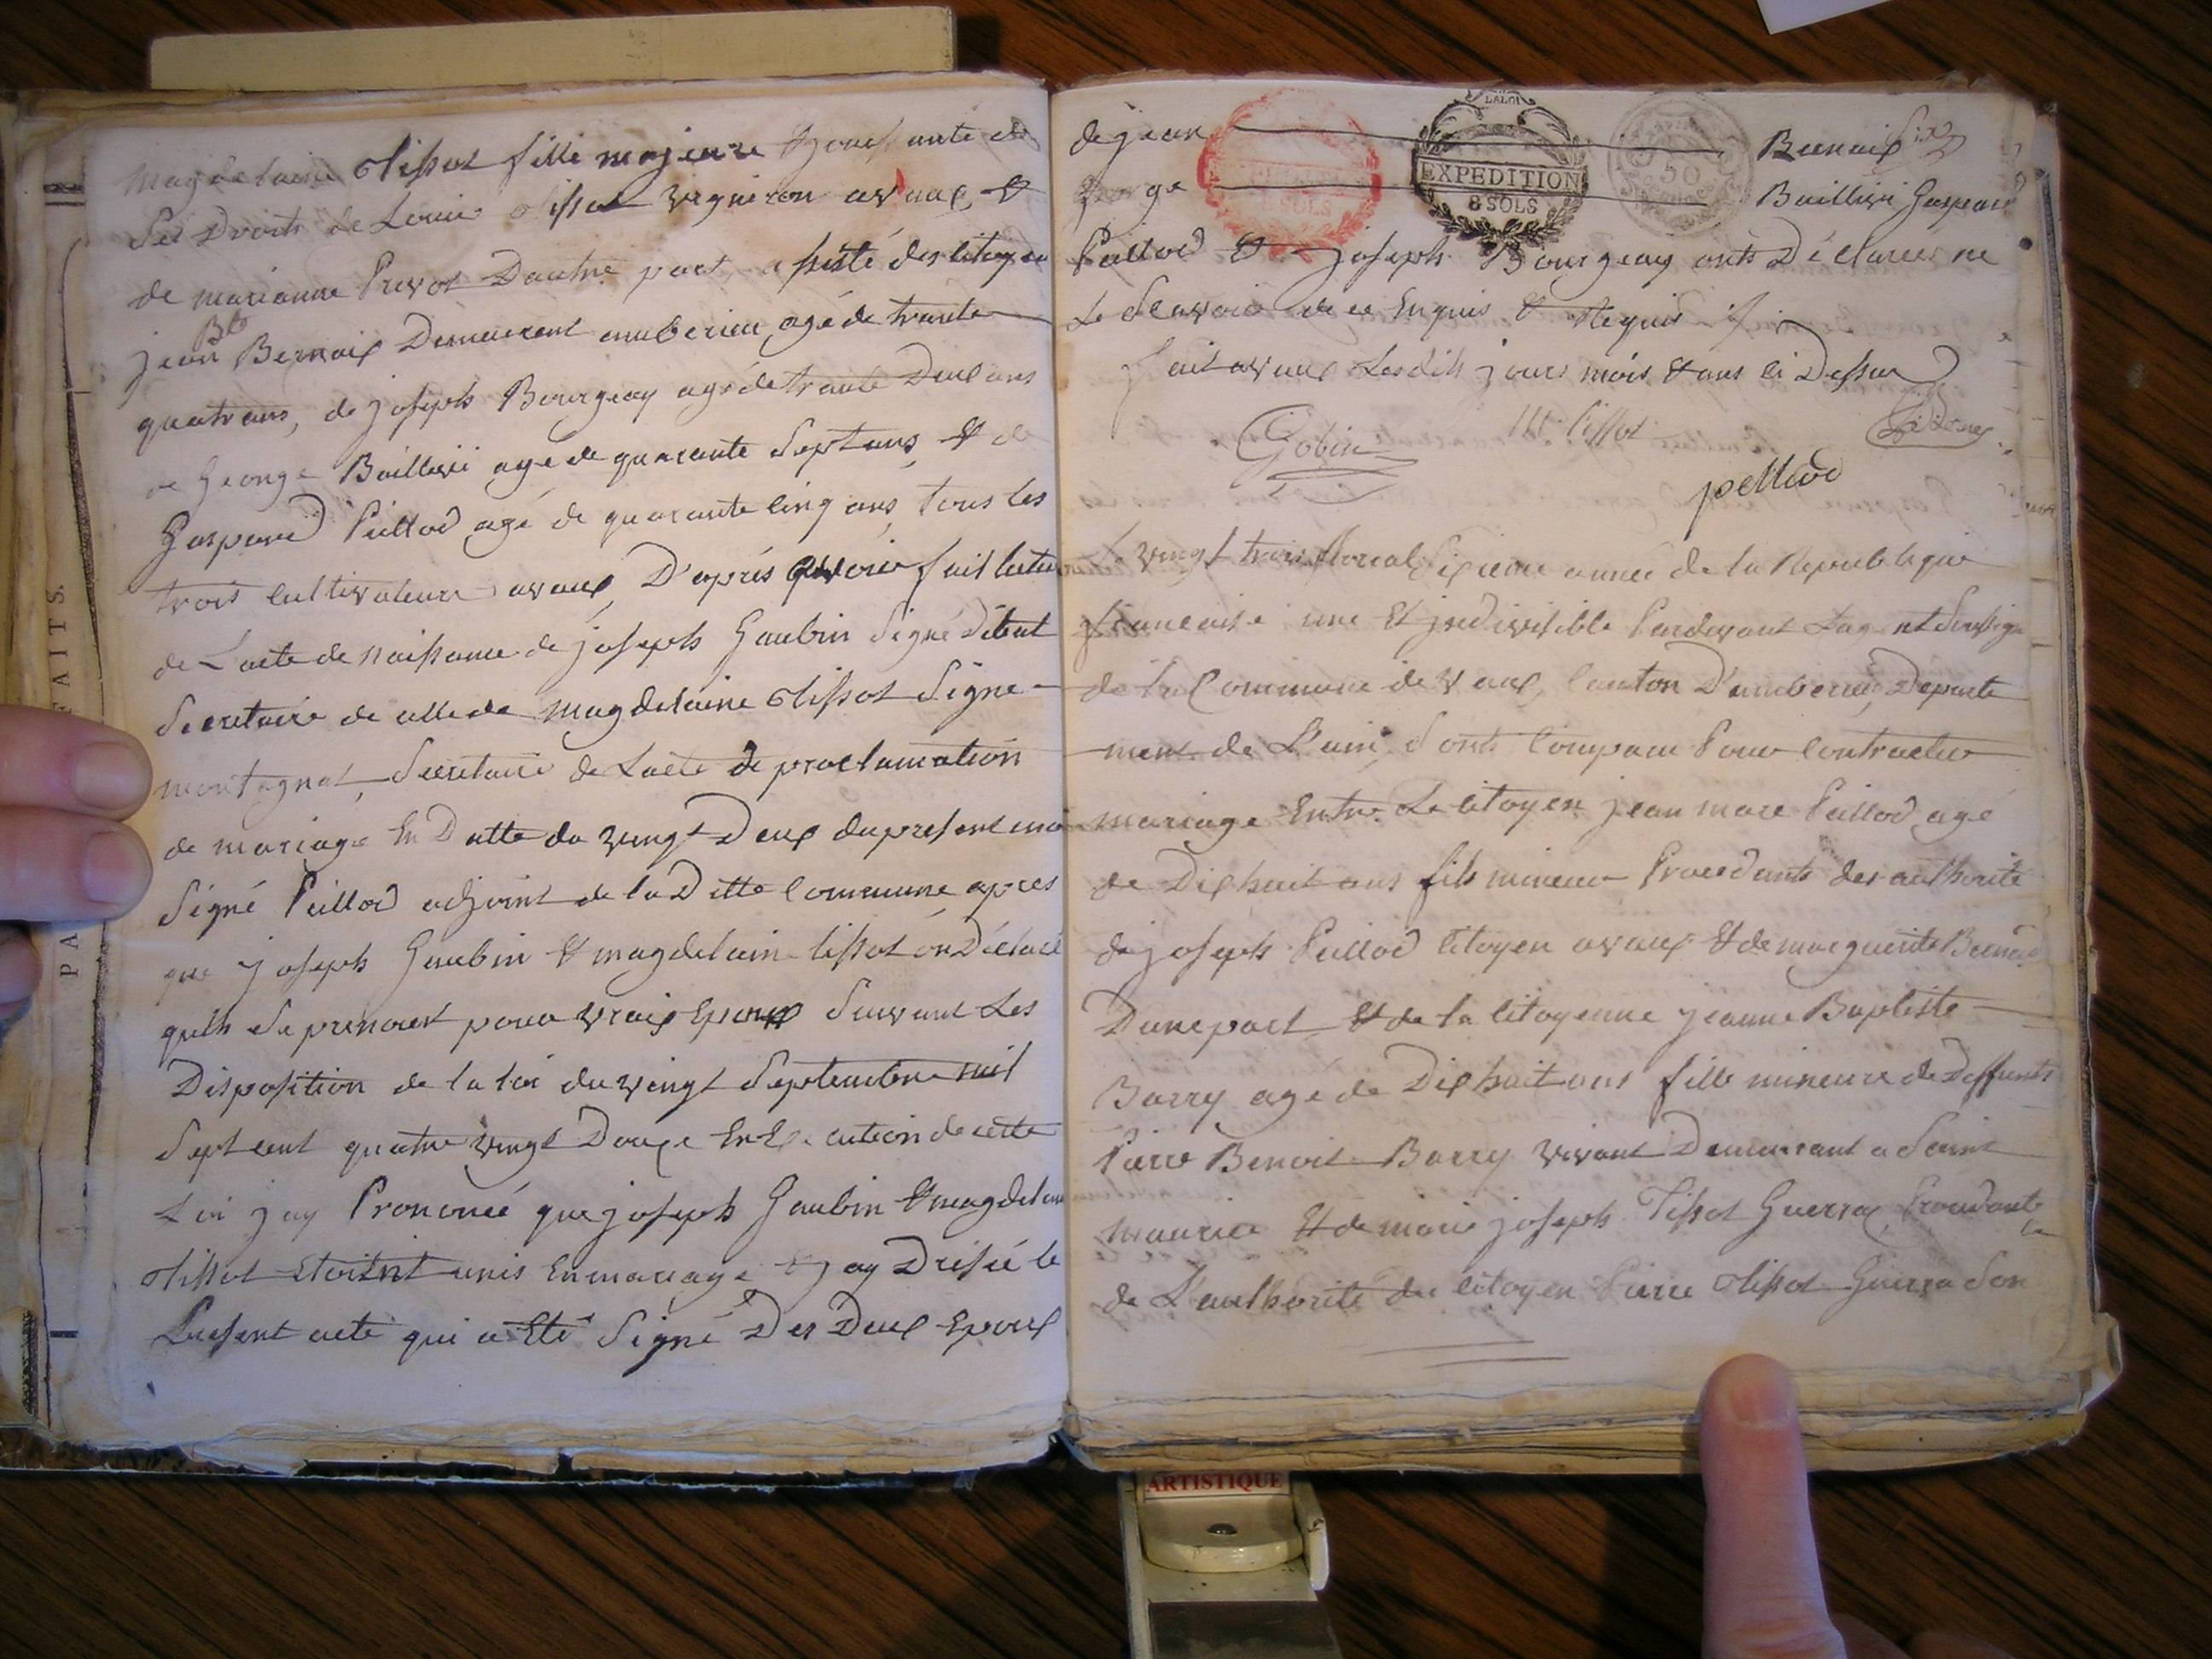 magdelaine tissot fille majeure & jouissante de
Ses Droits de Louis tissot vigneron avaux, &
de marianne Prevot Dautre part, assisté des citoyen
jean Bte Bernaix Demeurent amberieu, agé de trante
quatr ans, de joseph Bourgeay agé de trante Deux ans
de George Baillivi agé de quarante Sept ans, & de
Gaspard Peillod agé de quarante cinq ans, tous les
trois cultivateurs avaux, D'aprés avoir fait lectu
de Lacte de naissance de joseph Gaubin Signé
Secretaire de celle de magdelaine tissot Signe
montagnat, Secretaire de Lacte de proclamation
de mariage En Datte du vingt Deux du present moi
Signé Peillod adjoint de la Ditte Commune apres
que joseph Gaubin & magdelain tissot on Déclaré
quils Se prenoient pour vraix Epoux Suivant Les
Disposition de la loi du vingt Septembre mil
Sept cent quatre vingt Douze En Execution de cette
Loi jay Prononcé que joseph Gaubin & magdelaine
tissot Etoitnt unis En mariage & jay Dressé le
Present acte qui a Eté Signé Des Deux Epoux
de jean Bernaix
George Baillivi Gaspard
Peillod & joseph Bourgeay onts Déclarés ne
Le Scavoir de ce Enquis & Requis
fait avaux Lesdits jours mois & ans ci Dessus
Gobin M tissot
peillod
Le vingt trois floreal Sixieme année de la Republique
francaise une & jndivisible Pardevant Lagent Soussigne
de la Commune de vaux, Canton D'amberieu, Departe
ment de L'ain, Sonts Comparu Pour Contracter
mariage Entre Le Citoyen jean marc Peillod agé
de Dixhuit ans fils mineur Procedants des authorité
de joseph Peillod Citoyen avaux & de marguerite Bernaix
Dune part & de la Citoyenne jeanne Baptiste
Barry agé de Dixhuit ans fille mineure de Deffunts
Pierre Benoit Barry vivant Demeurant a Saint
maurice & de marie joseph Tissot Guerraz, Procedante
de L'authorité du Citoyen Pierre tissot Guerra Son
EXPEDITION
8 SOLS
LA LOI
50
PA FAITS.
ARTISTIQUE